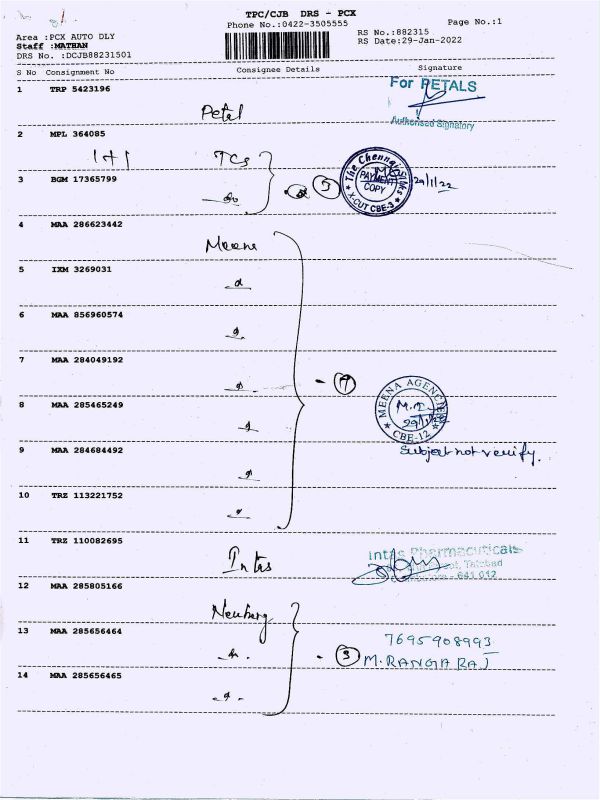 TPC/CJB DRS - PCX
Phone No.:0422-3505555
Page No.:1
Area :PCX AUTO DLY
Staff :MATHAN
DRS No. :DCJB88231501
RS No.:882315
RS Date:29-Jan-2022
S No Consignment No Consignee Details Signature
1 TRP 5423196
Petal
For PETALS
Authorised Signatory
2 MPL 364085
1+1 TCS
3 BGM 17365799
The Chennai Silks
PAYMENT
COPY
X-CUT CBE-3
29/1/22
4 MAA 286623442
Meena
5 IXM 3269031
6 MAA 856960574
7 MAA 284049192
7
8 MAA 285465249
MEENA AGENCIES
CBE-12
29/1/22
9 MAA 284684492
Subject not verify.
10 TRZ 113221752
11 TRZ 110082695
Intas
Intas Pharmaceuticals
641 012
12 MAA 285805166
Neuberg
13 MAA 285656464
3
7695908993
M.RANGARAJ
14 MAA 285656465